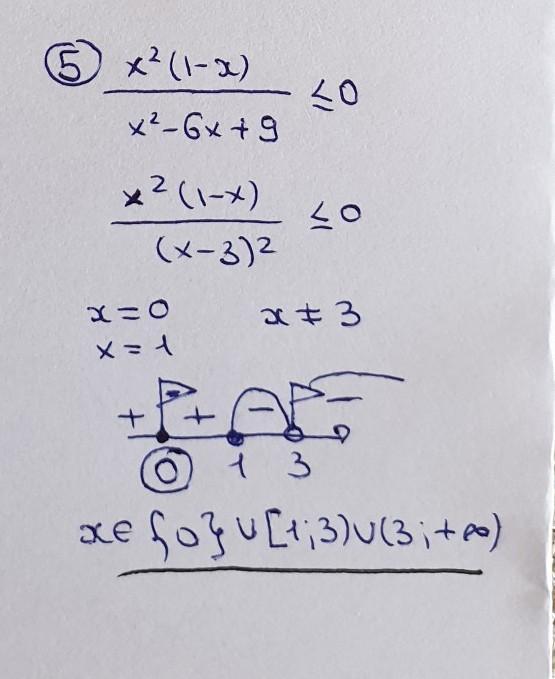 ⑤ x²(1-x) / x²-6x+9 ≤0
x²(1-x) / (x-3)² ≤0
x=0 x≠3
x=1
+ - + - -
0 1 3
x∈{0}∪[1;3)∪(3;+∞)